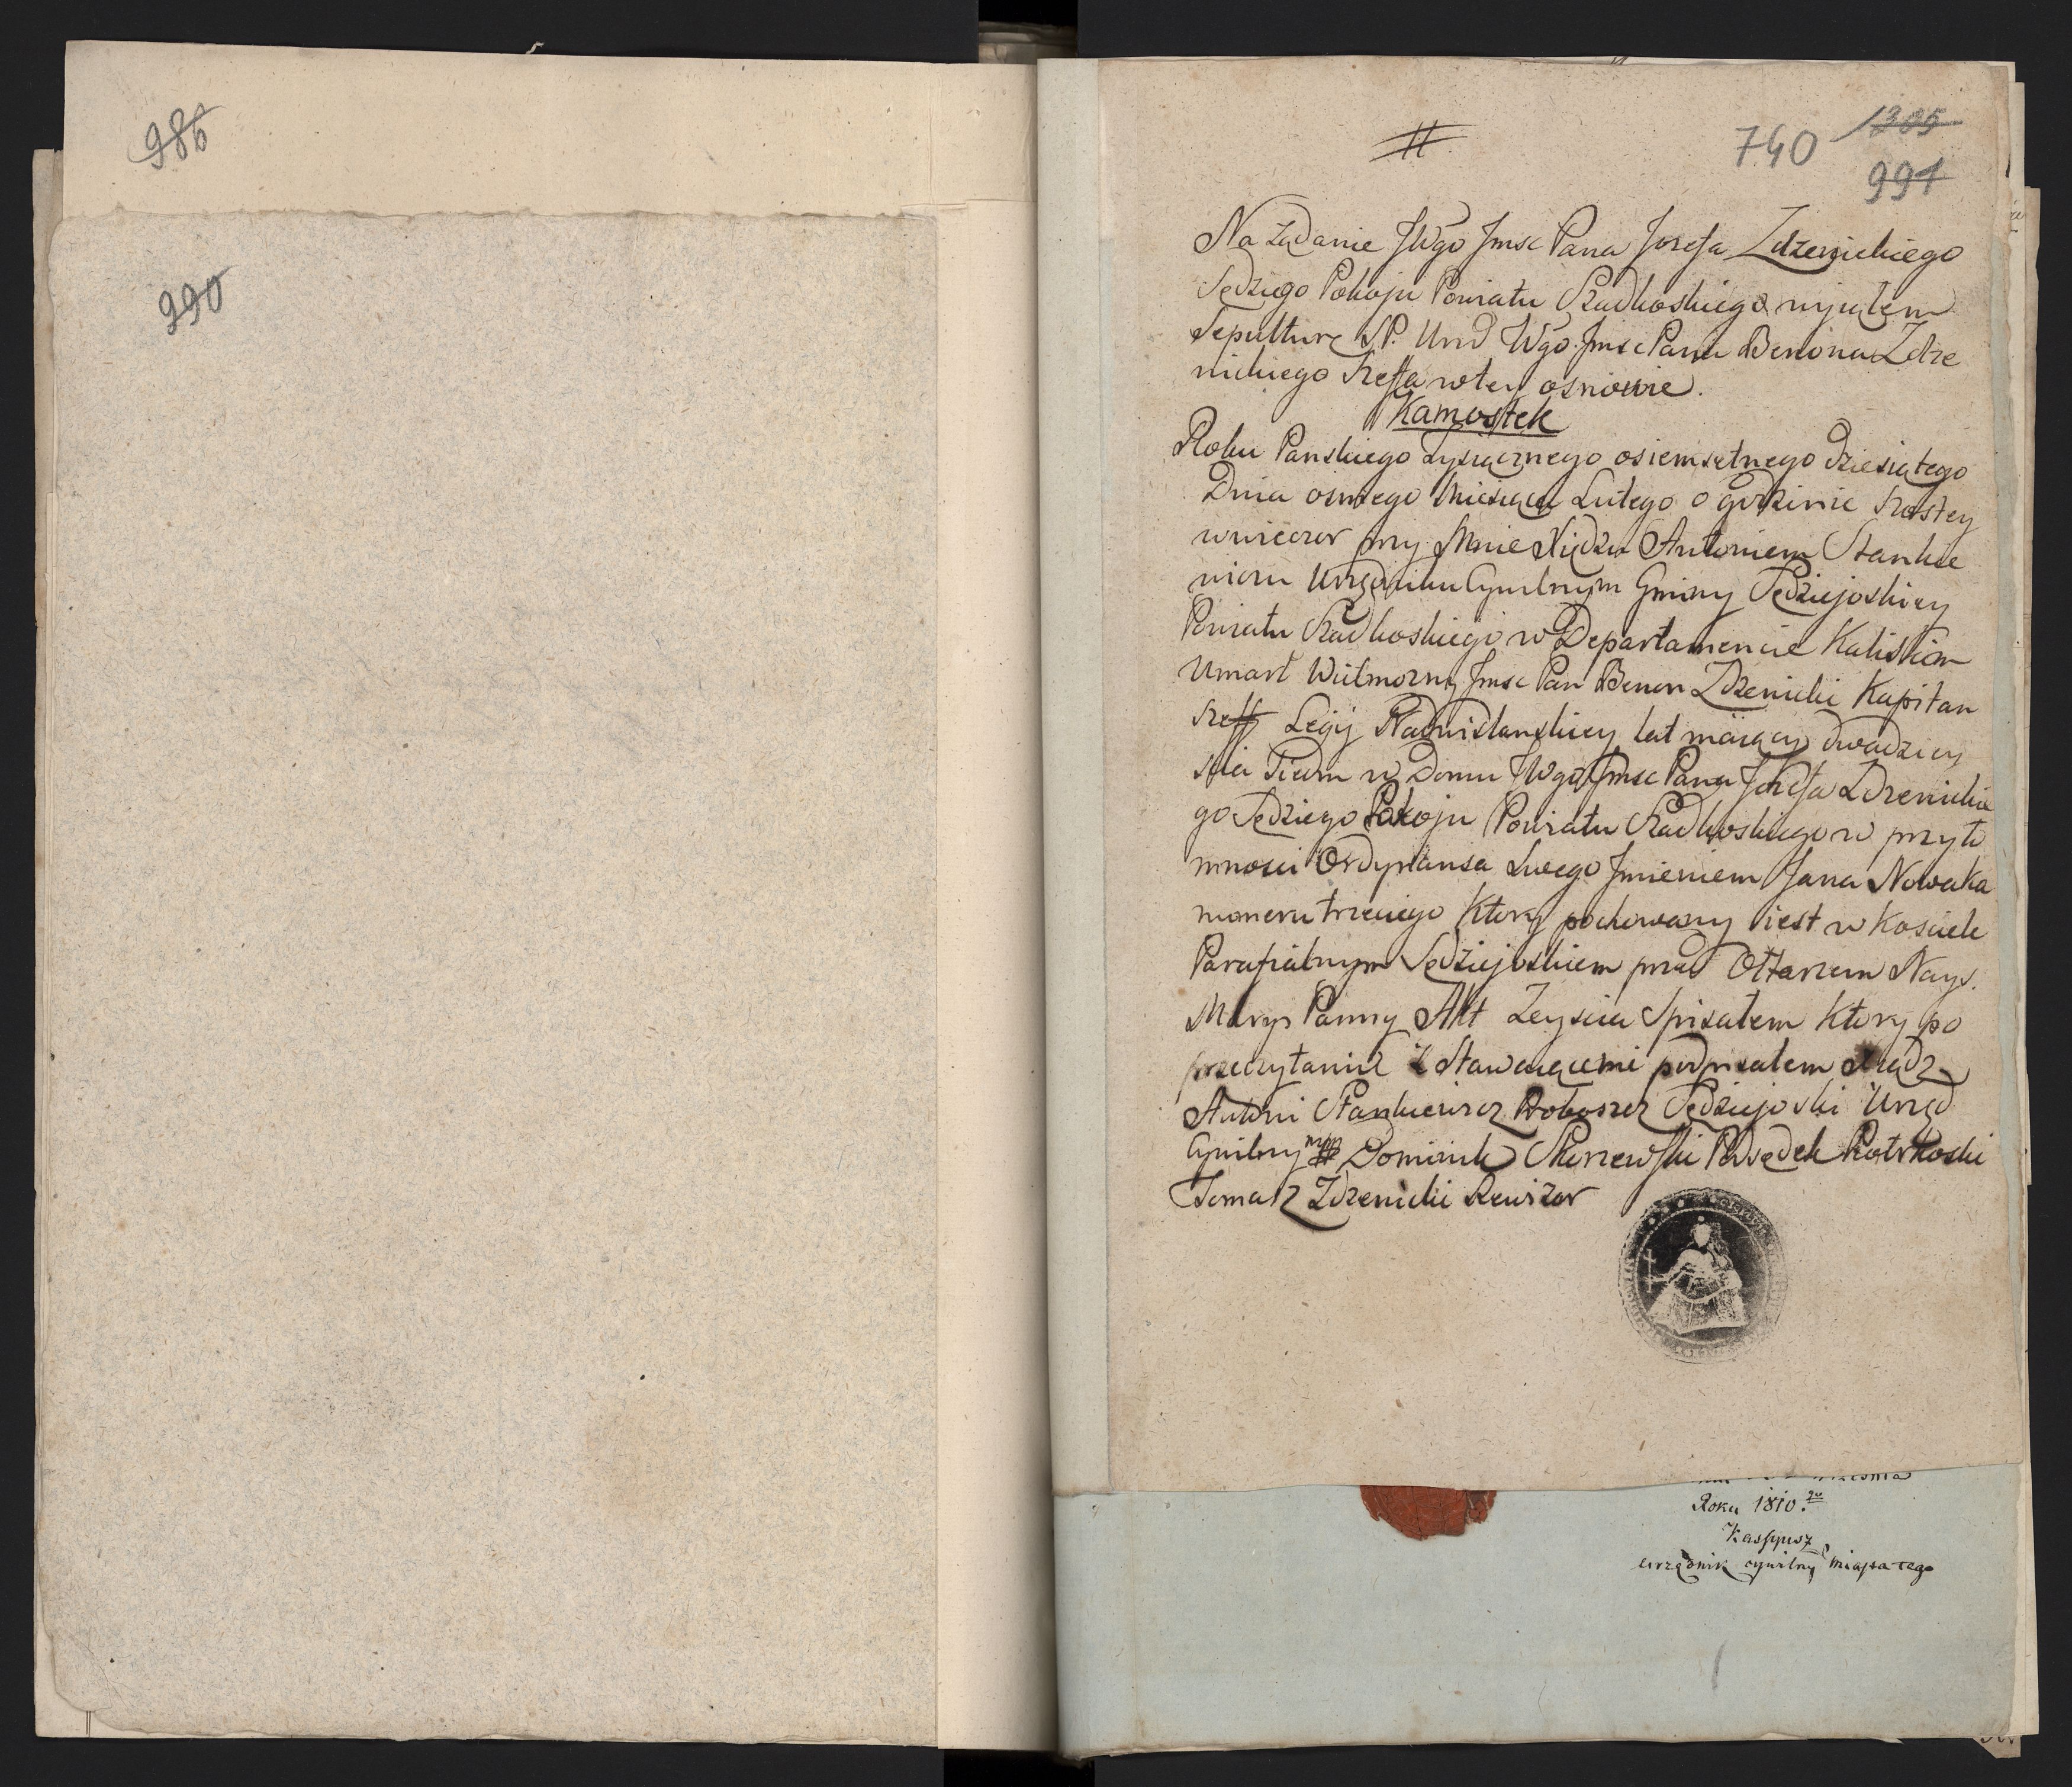 986
990
#
740 1305
991
Na żądanie JWgo Jmsc Pana Jozefa Zdzenickiego
Sędziego Pokoju Powiatu Szadkoskiego wyjąłem
Sepulturę S.P. Wgo Jmsc Pana Benona Zdze
nickiego Szeffa w tey osnowie.
Kamostek
Roku Panskiego Tysiącznego osiemsetnego dziesiątego
Dnia osmego Miesiąca Lutego o godzinie szostey
wwieczor przy Mnie Xiędzu Antoniem Stankie
wiczu Urzędniku Cywilnym Gminy Sędziejoskiey
Powiatu Szadkoskiego w Departamencie Kaliskim
Umarł Wielmozny Jmsc Pan Benon Zdzenicki Kapitan
Szeff Legij Nadwislanskiey lat maiący dwadziey
scia Siedm w Domu JWgo Jmsc Pana Jozefa Zdzenickie
go Sędziego Pokoju Powiatu Szadkoskiego w przyto
mnosci Ordynansa swego Jmieniem Jana Nowaka
numeru trzeciego Ktory pochowany iest w Kosciele
Parafialnym Sędziejoskiem przed Ołtarzem Nays.
Maryi Panny Akt Zeyscia Spisałem Ktory po
przeczytaniu z Stawaiącemi podpisałem Xiądz
Antoni Stankiewicz Proboszcz Sędziejoski Urzęd
Cywilny mpp Dominik Skorzewski Podsędek Piotrkoski
Tomasz Zdzenicki Rewizor
Roku 1810.go
urzędnik cywilny miasta tego